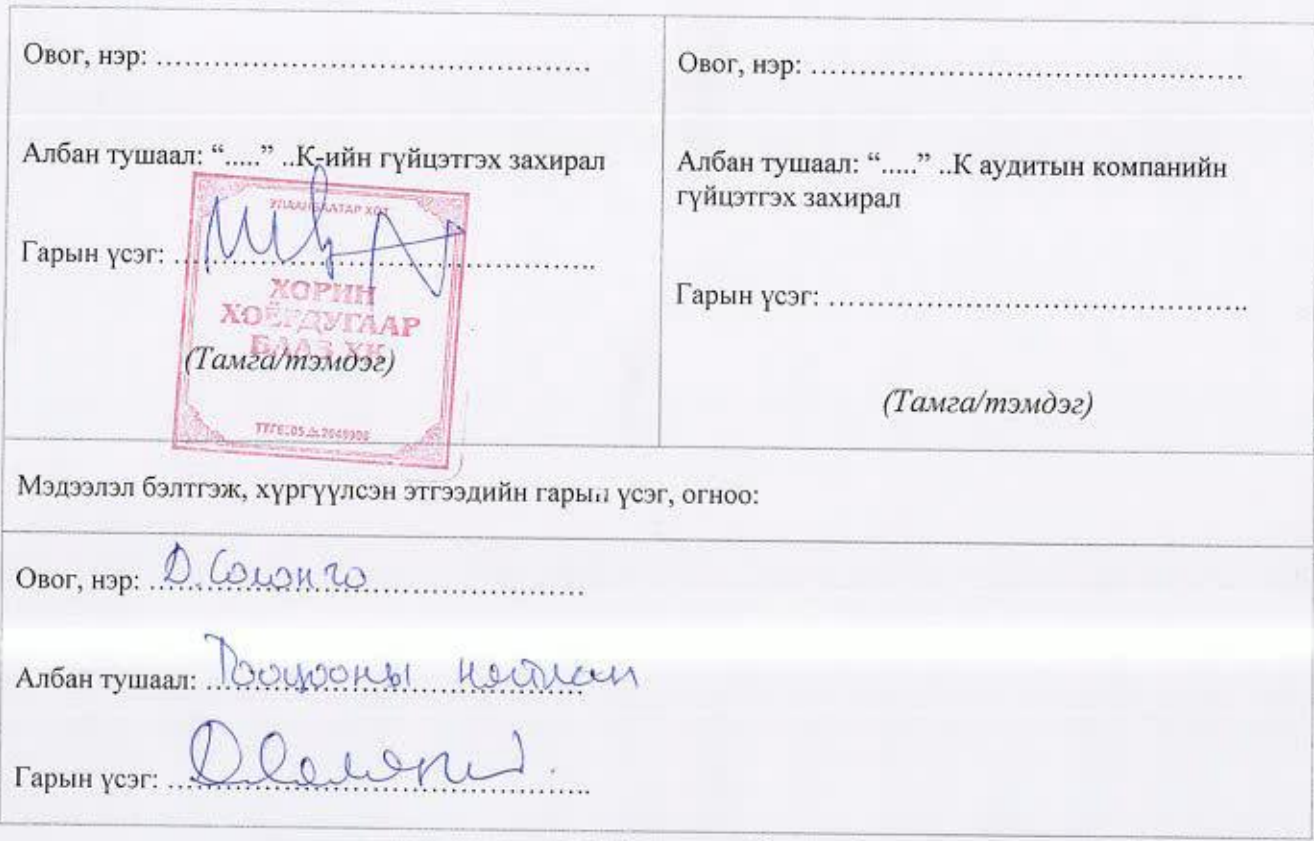 Овог, нэр: ..................................................
Албан тушаал: “.....” ..К-ийн гүйцэтгэх захирал
Гарын үсэг: ..................................................
УЛААНБААТАР ХОТ
ХОРИН
ХОЁРДУГААР
БААЗ ХК
(Тамга/тэмдэг)
Овог, нэр: ..................................................
Албан тушаал: “.....” ..К аудитын компанийн
гүйцэтгэх захирал
Гарын үсэг: ..................................................
(Тамга/тэмдэг)
Мэдээлэл бэлтгэж, хүргүүлсэн этгээдийн гарын үсэг, огноо:
Овог, нэр: Д. Солонго
Албан тушаал: Тооцооны нягтлан
Гарын үсэг: ..................................................